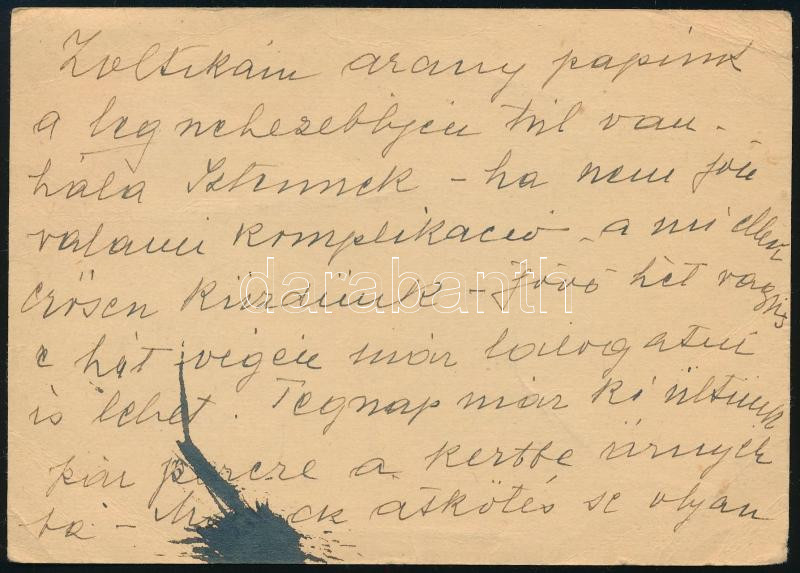 Zoltikám arany papink
a legnehezebbjén túl van -
hála Istennek - ha nem jön
valami komplikació - a mi ellen
erősen küzdünk - Jövő hét vagyis
e hét végén már látogatni
is lehet. Tegnap már ki ültünk
pár percre a kertbe árnyék
ba - ck átkötés se olyan
darabanth